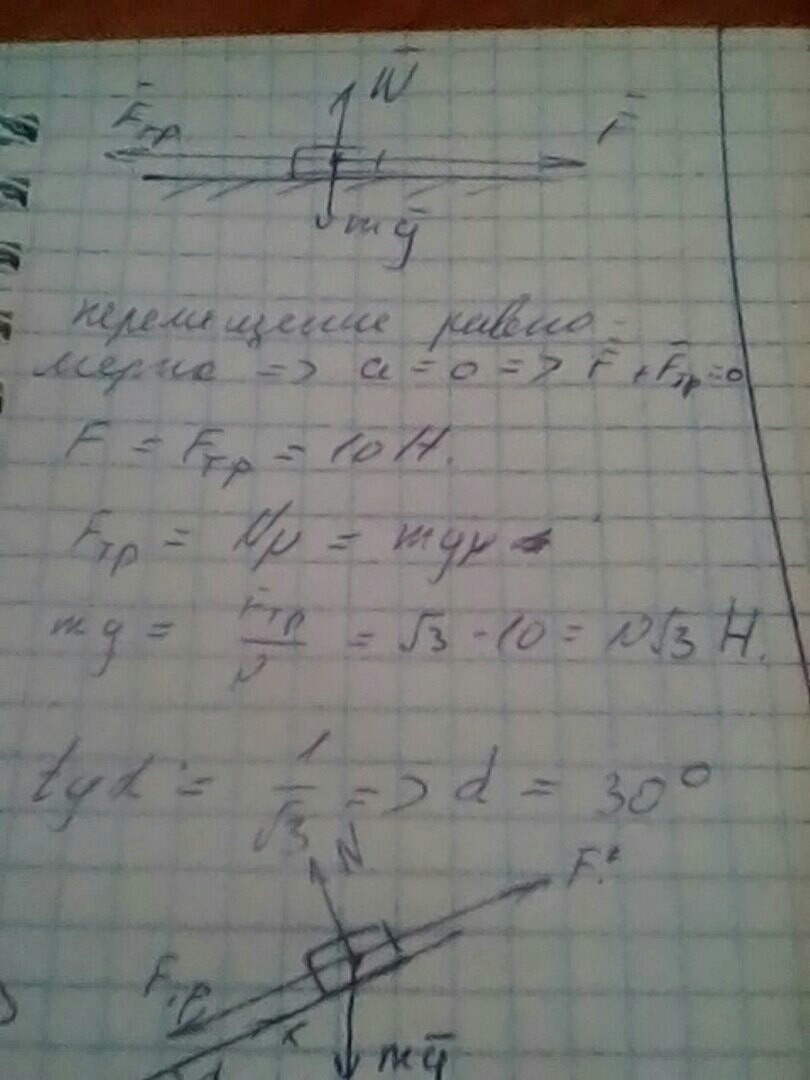 N̅
F̅тр F̅
mg̅
перемещение равно-
мерно => a = 0 => F̅ + F̅тр = 0
F = Fтр = 10 Н.
Fтр = Nμ = mgμ
mg = Fтр/μ = √3 · 10 = 10√3 Н.
tgα = 1/√3 => α = 30°
N
F
Fтр
x
mg̅